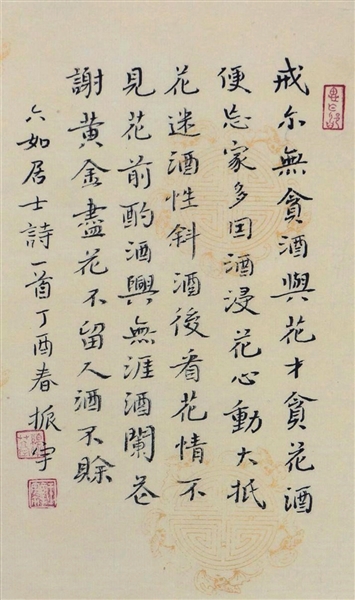 戒尔無貪酒與花才貪花酒
便忘家多因酒浸花心動大抵
花迷酒性斜酒後看花情不
見花前酌酒興無涯酒闌花
謝黃金盡花不留人酒不賒
六如居士詩一首丁酉春振宇